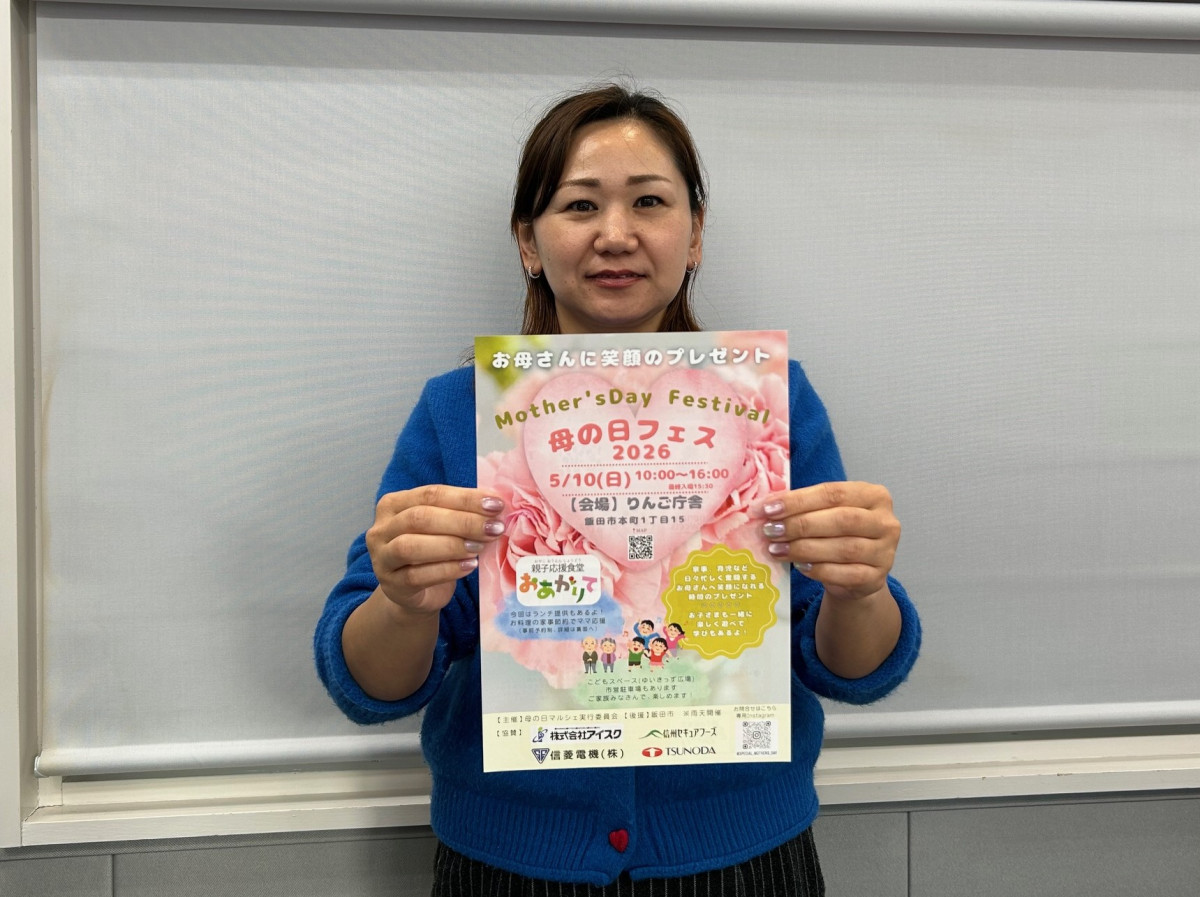 お母さんに笑顔のプレゼント
Mother'sDay Festival
母の日フェス
2026
5/10(日) 10:00～16:00
最終入場15:30
【会場】りんご庁舎
飯田市本町1丁目15
親子応援食堂
おあがりて
今回はランチ提供もあるよ！
お料理の家事節約でママ応援
家事、育児など
日々忙しく奮闘する
お母さんへ笑顔になれる
時間のプレゼント
お子さまも一緒に
楽しく遊べて
学びもあるよ！
こどもスペース(ゆいきっず広場)
市営駐車場もあります
ご家族みなさんで、楽しめます！
【主催】母の日マルシェ実行委員会 【後援】飯田市 ※雨天開催
【協賛】
株式会社アイスク
信州セキュアフーズ
信菱電機(株)
TSUNODA
お問合せはこちら
専用Instagram